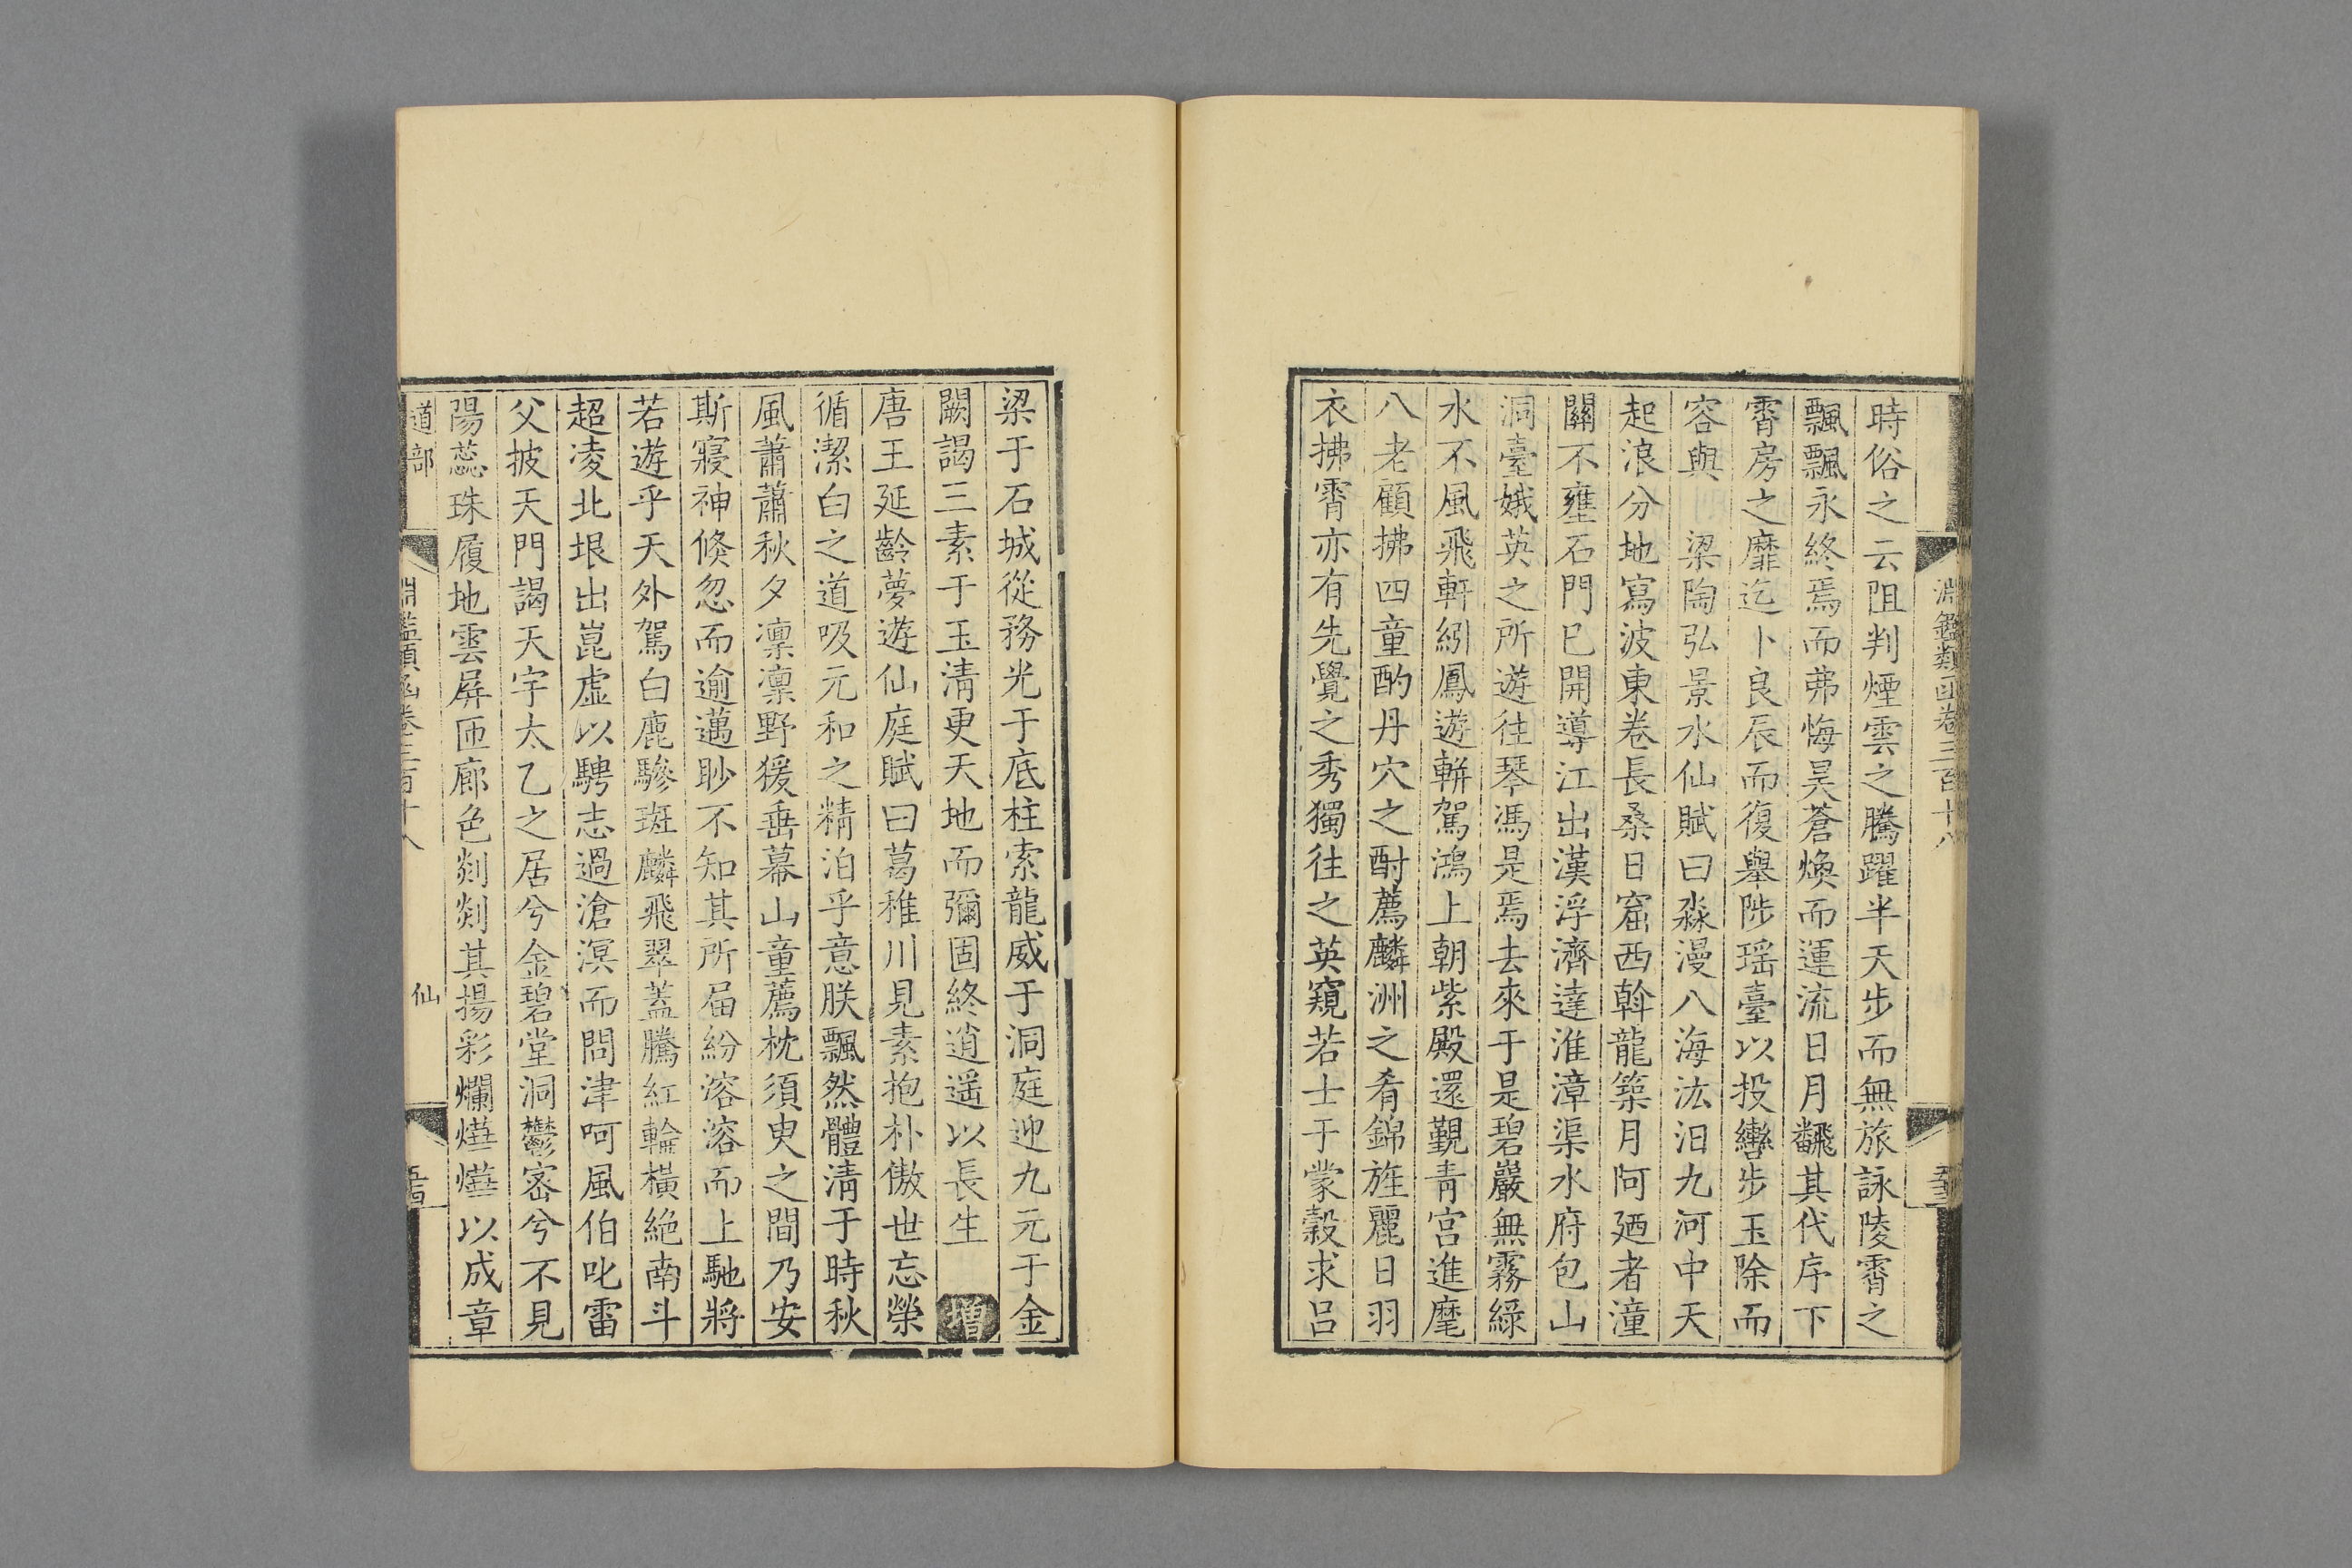 淵鑑類函卷三百十八
時俗之云阻判煙雲之騰躍半天步而無旅詠陵霄之
飄飄永終焉而弗悔昊蒼煥而運流日月飜其代序下
霄房之靡迄卜良辰而復舉陟瑶臺以投轡步玉除而
容與 梁陶弘景水仙賦曰淼漫八海汯汩九河中天
起浪分地寫波東卷長桑日窟西斡龍築月阿廼者潼
關不壅石門已開導江出漢浮濟達淮漳渠水府包山
洞臺娥英之所遊往琴馮是焉去來于是碧巖無霧綠
水不風飛軒紖鳳遊軿駕鴻上朝紫殿還覲青宫進麾
八老顧拂四童酌丹穴之酎薦麟洲之肴錦旌麗日羽
衣拂霄亦有先覺之秀獨往之英窺若士于蒙穀求呂
梁于石城從務光于底柱索龍威于洞庭迎九元于金
闕謁三素于玉清更天地而彌固終逍遥以長生 增
唐王延齡夢遊仙庭賦曰葛稚川見素抱朴傲世忘榮
循潔白之道吸元和之精泊乎意朕飄然體清于時秋
風蕭蕭秋夕凛凛野猨垂幕山童薦枕須臾之間乃安
斯寢神倏忽而逾邁眇不知其所屆紛溶溶而上馳將
若遊乎天外駕白鹿驂斑麟飛翠蓋騰紅輪橫絶南斗
超凌北垠出崑虛以騁志過滄溟而問津呵風伯叱雷
父披天門謁天宇太乙之居兮金碧堂洞鬱宻兮不見
陽蕊珠履地雲屏匝廊色剡剡其揚彩爛燁燁以成章
道部
淵鑑類函卷三百十八
仙